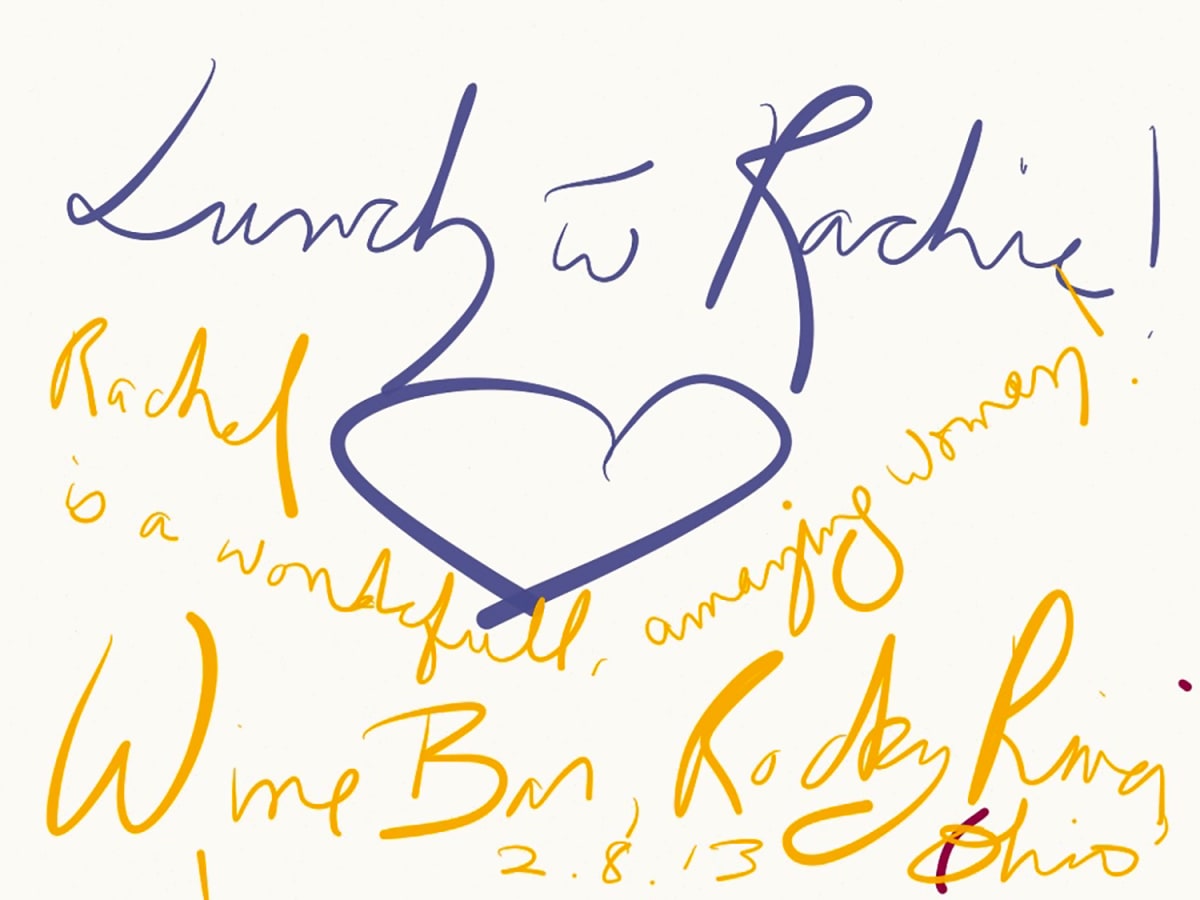 Lunch w̄ Rachie!
Rachel
is a wonderfull, amazing woman!
Wine Bar, Rocky River,
2.8.'13 Ohio